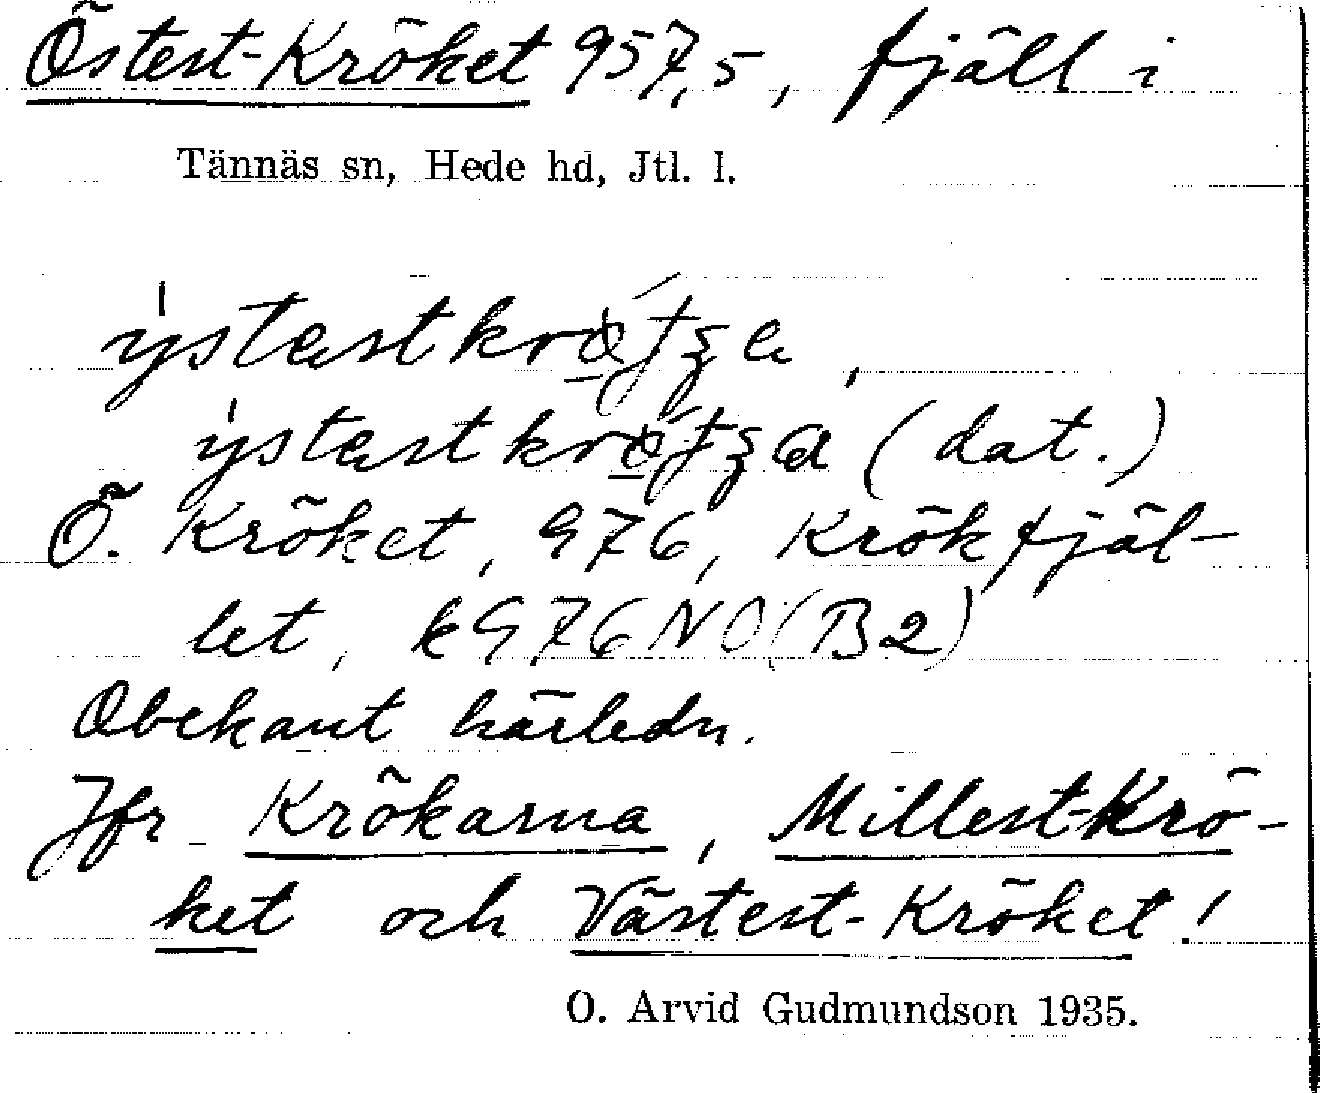 Östest-Kröket 957,5, fjäll i
Tännäs sn, Hede hd, Jtl. l.
(dat.)
Ö. Kröket, 976, Krökfjäl-
let, k976NO(B2)
Obekant härledn.
Jfr Krökarna, Millest-Krö-
ket och Västest-Kröket!
O. Arvid Gudmundson 1935.